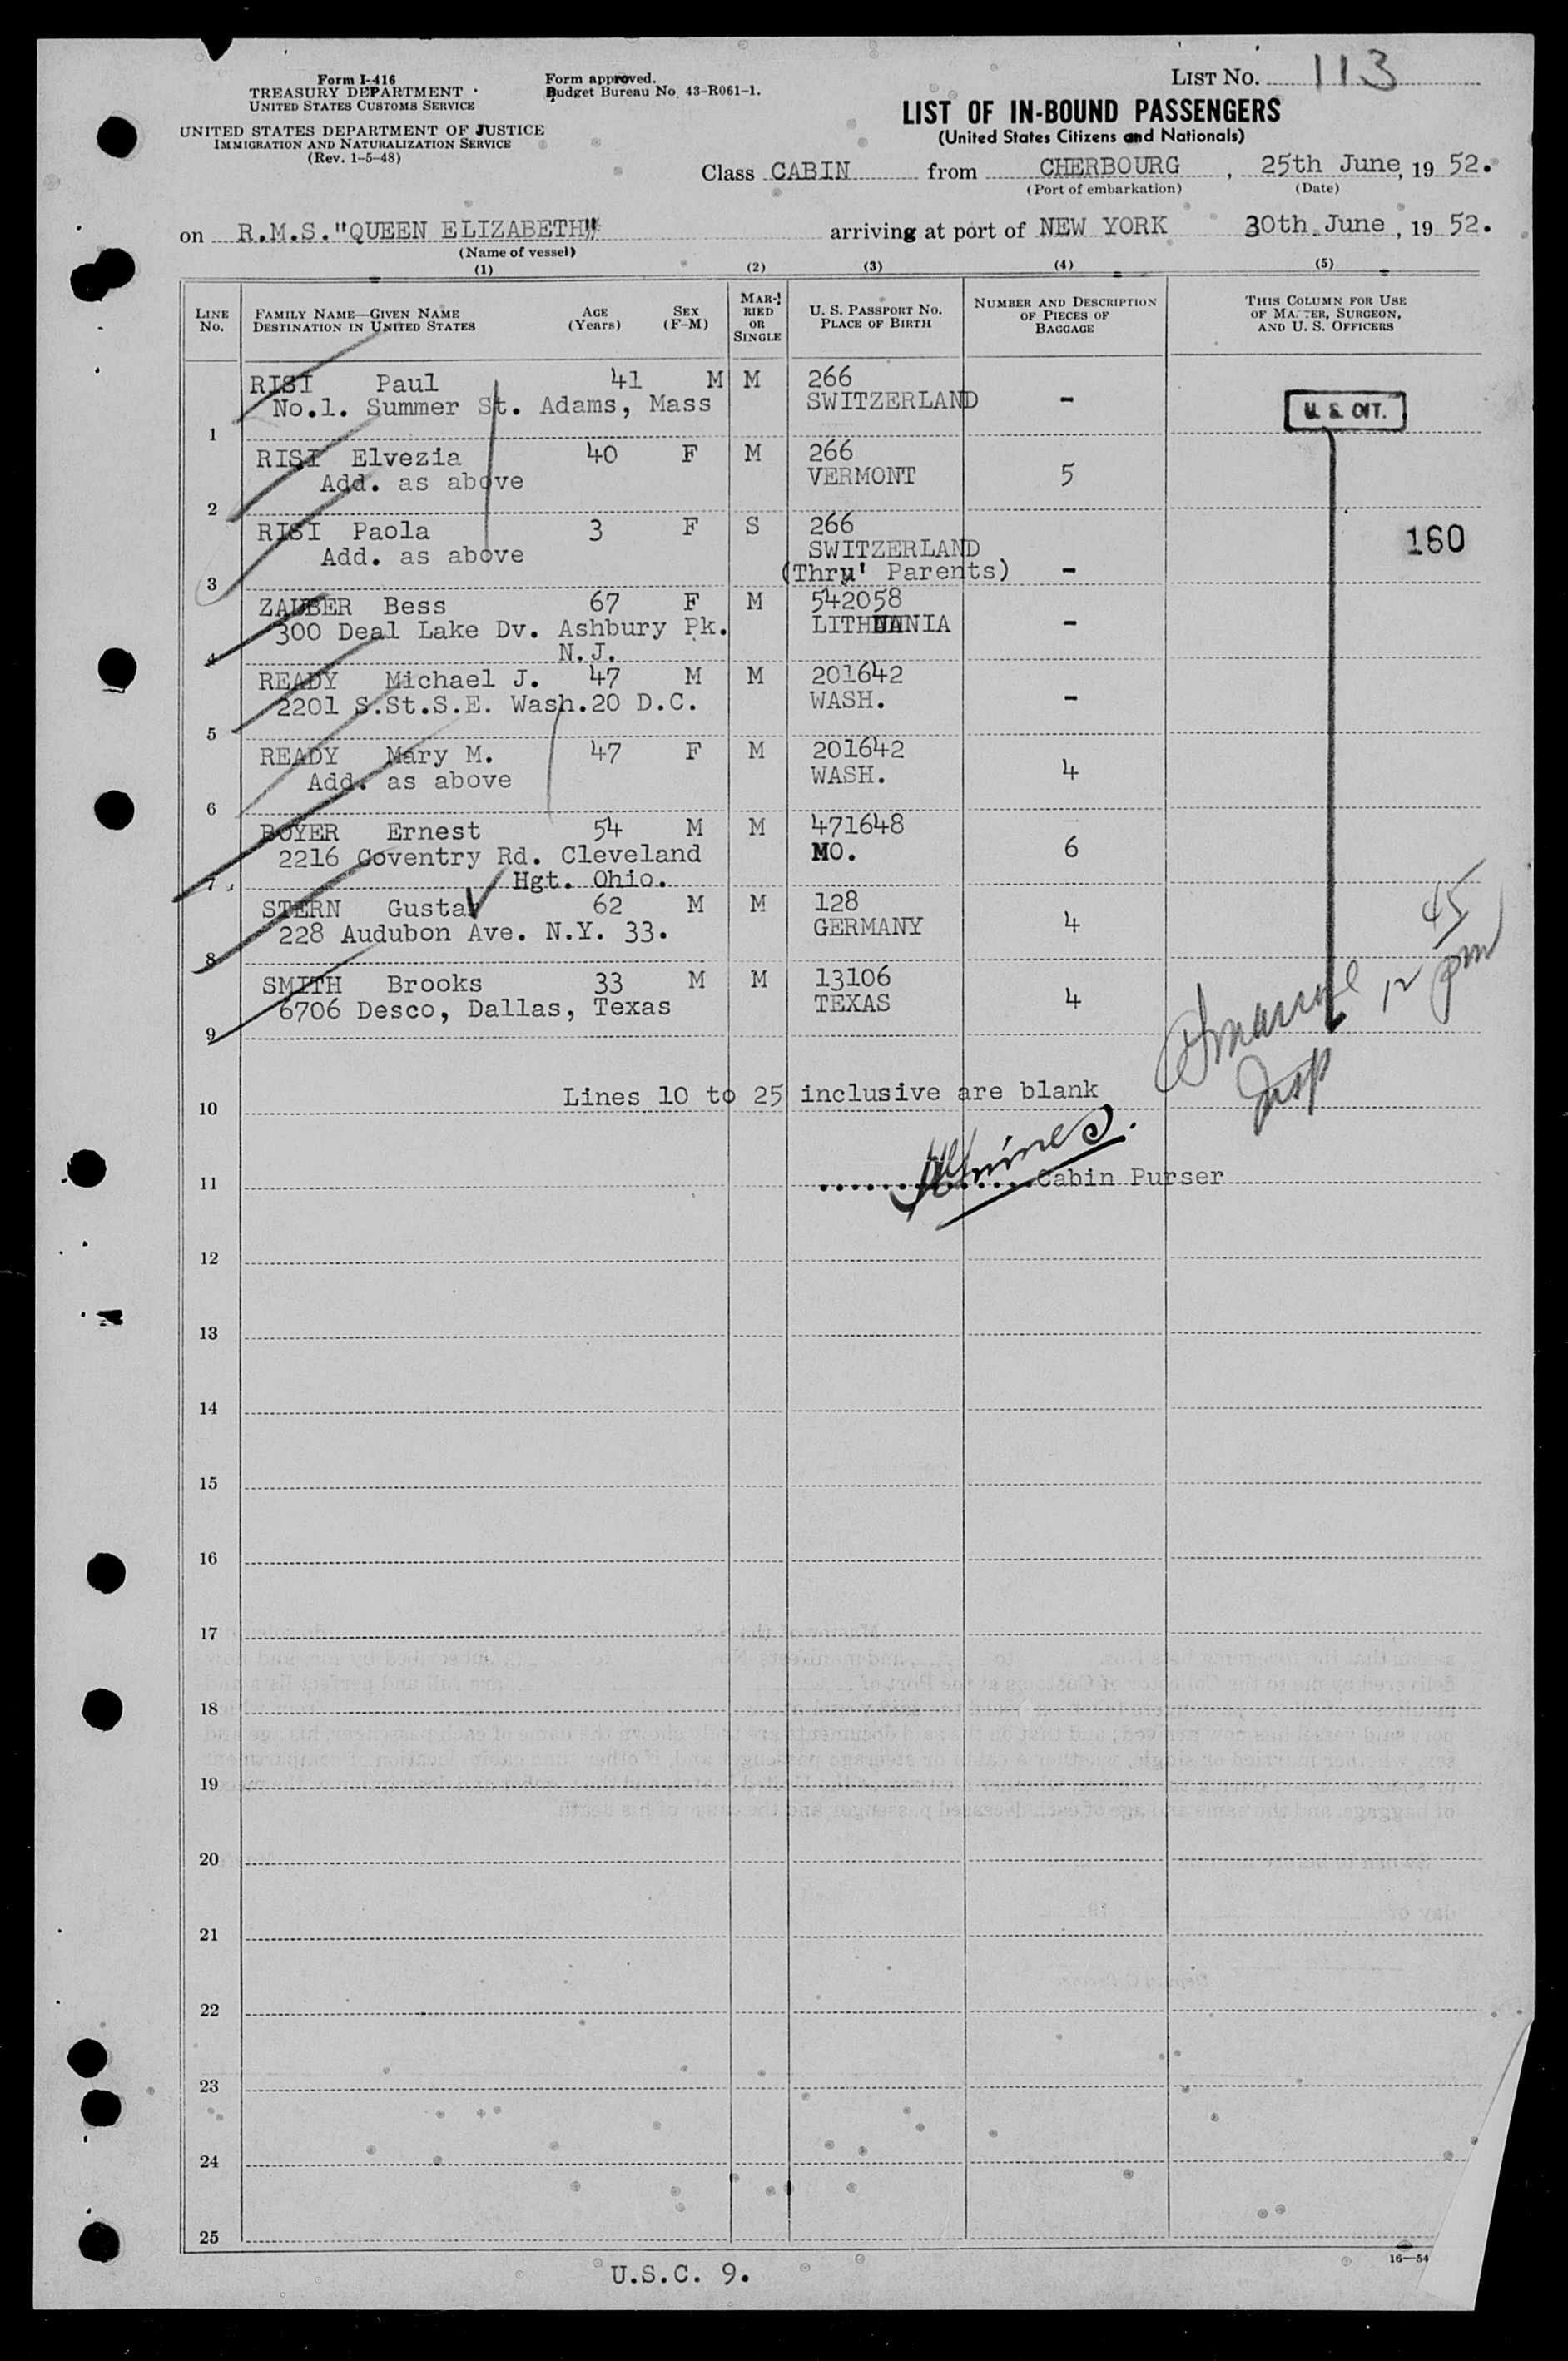 Form I-416
TREASURY DEPARTMENT
UNITED STATES CUSTOMS SERVICE
UNITED STATES DEPARTMENT OF JUSTICE
IMMIGRATION AND NATURALIZATION SERVICE
(Rev. 1-5-48)
Form approved.
Budget Bureau No. 43-R061-1.
LIST NO. 113
LIST OF IN-BOUND PASSENGERS
(United States Citizens and Nationals)
Class CABIN from CHERBOURG, 25th June, 19 52.
(Port of embarkation) (Date)
on R.M.S. "QUEEN ELIZABETH" arriving at port of NEW YORK 30th June, 19 52.
(Name of vessel)
(1) (2) (3) (4) (5)
LINE No. FAMILY NAME—GIVEN NAME DESTINATION IN UNITED STATES AGE (Years) SEX (F-M) MARRIED OR SINGLE U. S. PASSPORT NO. PLACE OF BIRTH NUMBER AND DESCRIPTION OF PIECES OF BAGGAGE THIS COLUMN FOR USE OF MASTER, SURGEON, AND U. S. OFFICERS
RISI Paul 41 M M 266
No.1. Summer St. Adams, Mass SWITZERLAND - U. S. CIT.
1
RISI Elvezia 40 F M 266
Add. as above VERMONT 5
2
RISI Paola 3 F S 266
Add. as above SWITZERLAND 160
3 (Thru' Parents) -
ZAUBER Bess 67 F M 542058
300 Deal Lake Dv. Ashbury Pk. LITHUANIA -
4 N.J.
READY Michael J. 47 M M 201642
2201 S.St.S.E. Wash.20 D.C. WASH. -
5
READY Mary M. 47 F M 201642
Add. as above WASH. 4
6
BOYER Ernest 54 M M 471648
2216 Coventry Rd. Cleveland MO. 6
7 Hgt. Ohio.
STERN Gustav 62 M M 128
228 Audubon Ave. N.Y. 33. GERMANY 4
8
SMITH Brooks 33 M M 13106
6706 Desco, Dallas, Texas TEXAS 4
9
12 45 pm
Insp
Lines 10 to 25 inclusive are blank
10
11 Cabin Purser
12
13
14
15
16
17
18
19
20
21
22
23
24
25
16—54
U.S.C. 9.